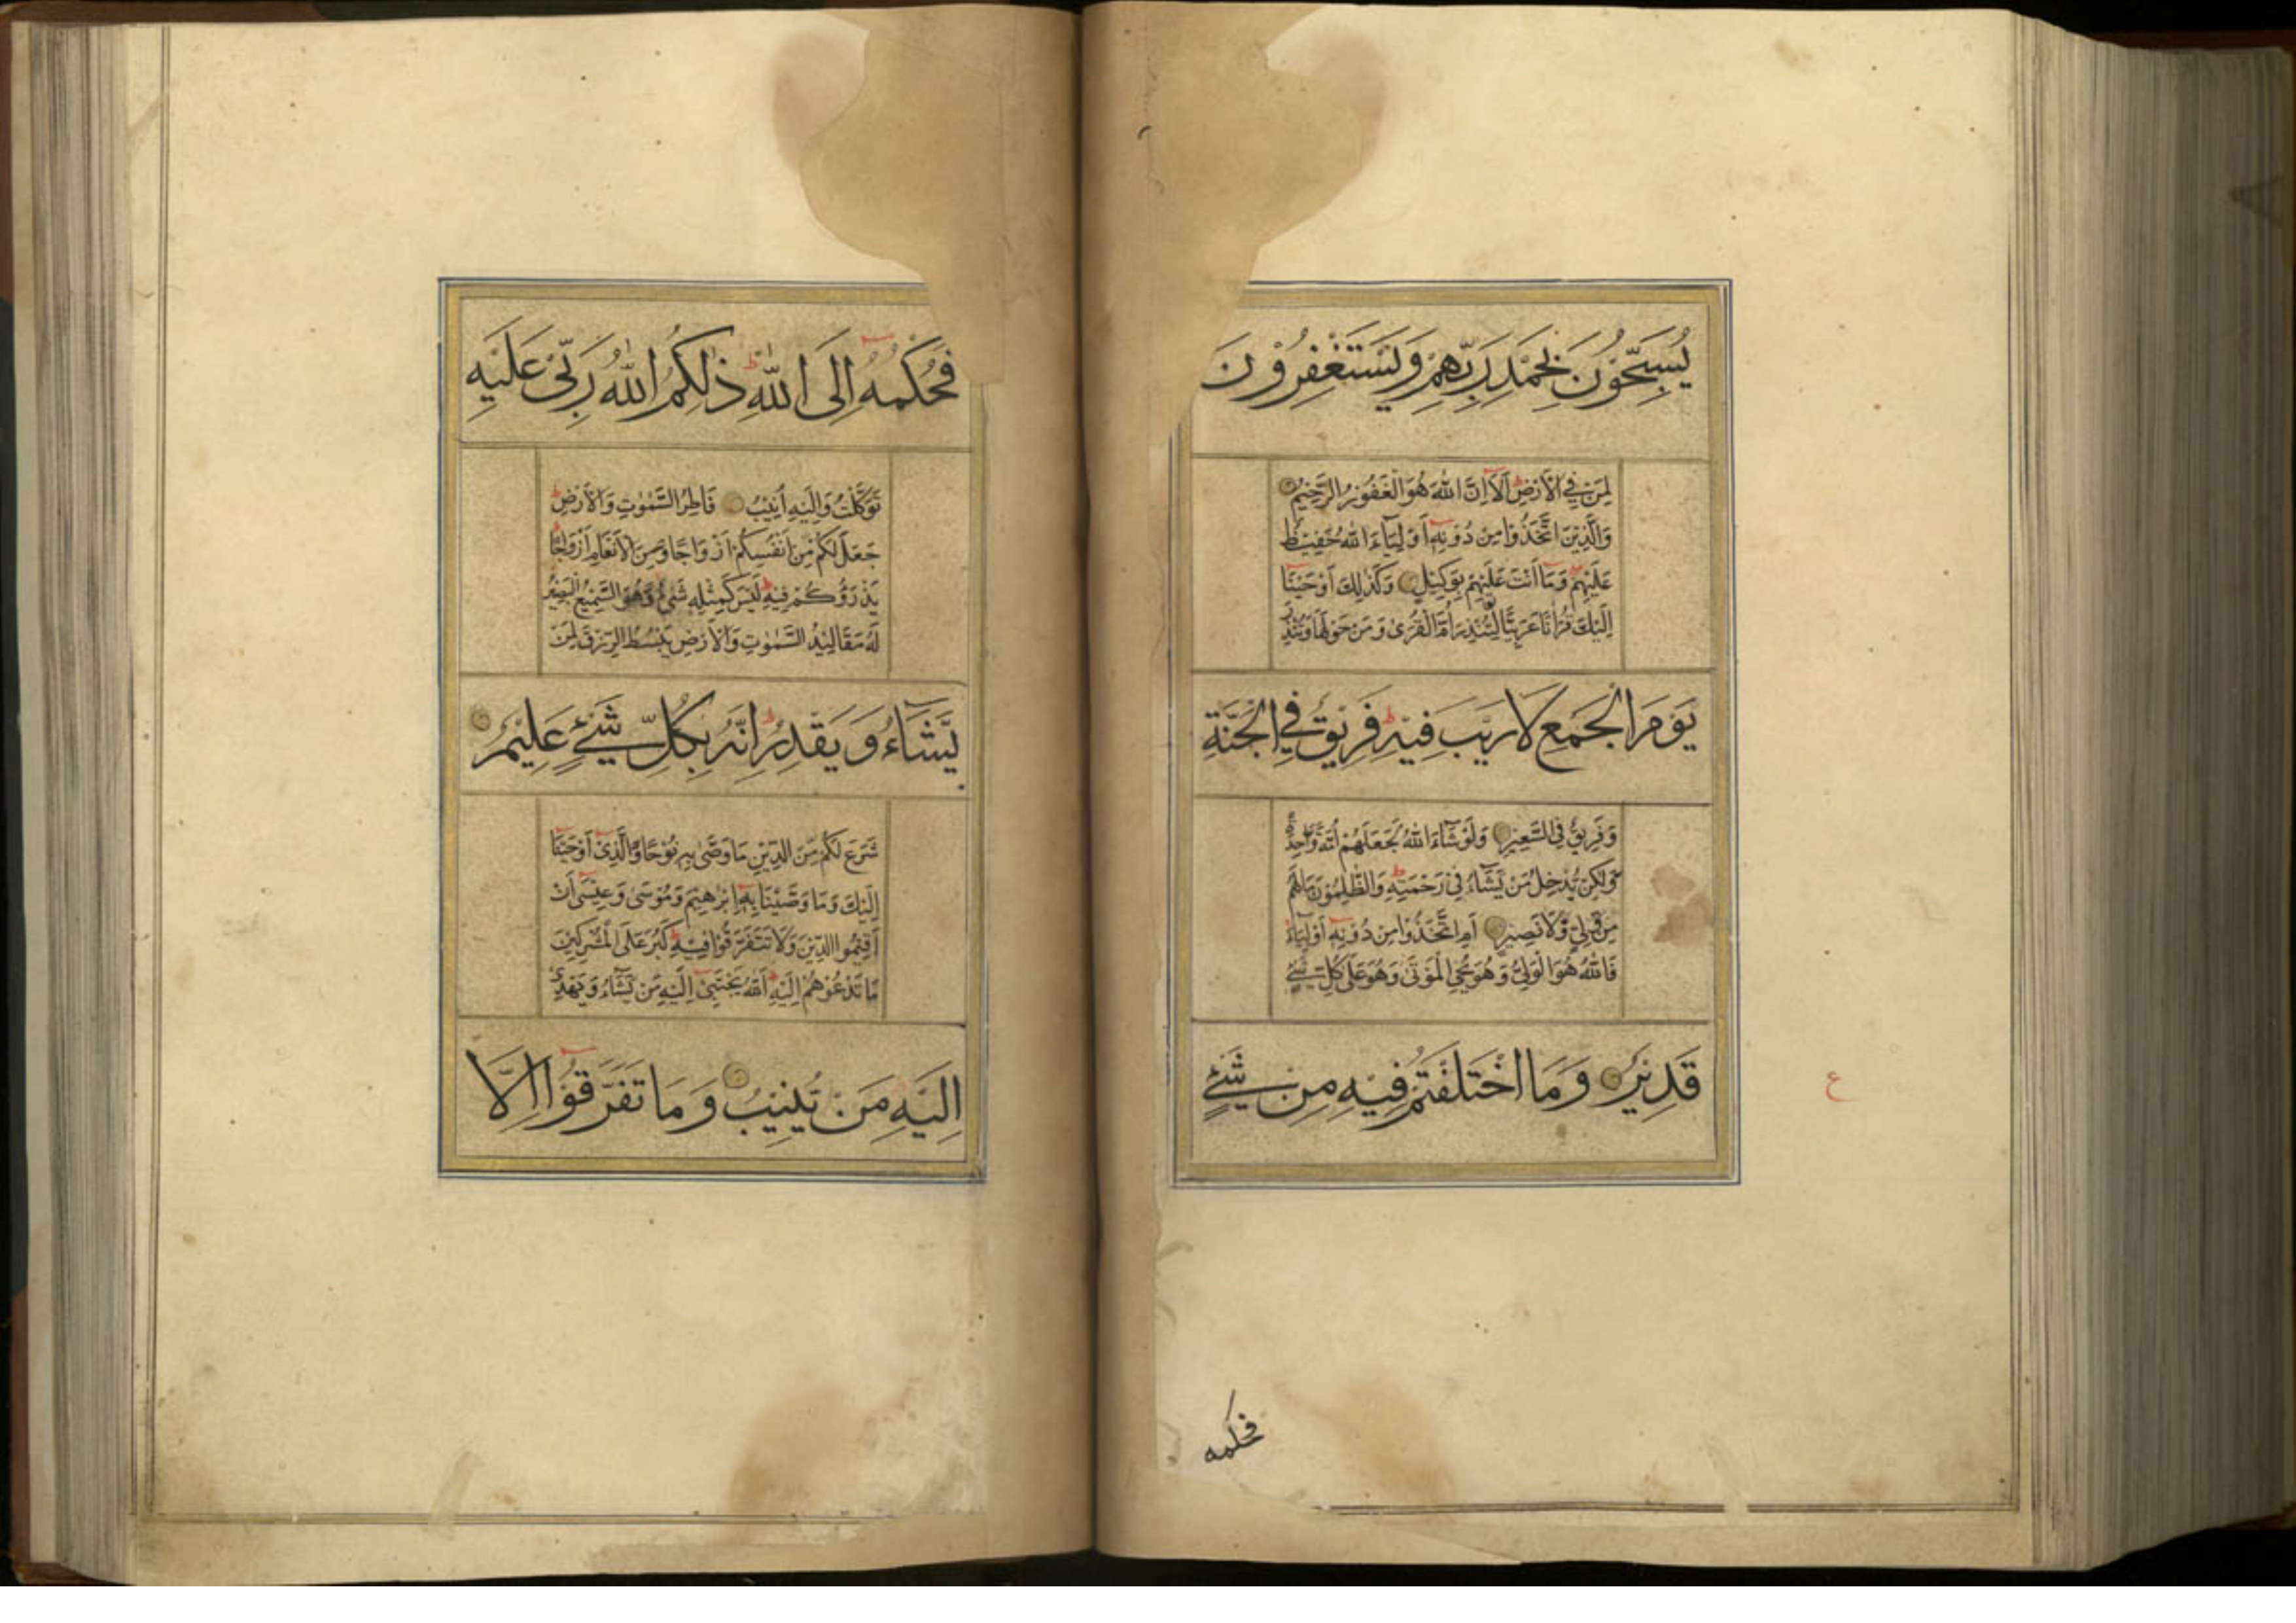 يُسَبِّحُوْنَ بِحَمْدِ رَبِّهِمْ وَيَسْتَغْفِرُوْنَ
لِمَنْ فِي الْاَرْضِ اَلَآ اِنَّ اللّٰهَ هُوَ الْغَفُوْرُ الرَّحِيْمُ
وَالَّذِيْنَ اتَّخَذُوْا مِنْ دُوْنِهٖٓ اَوْلِيَآءَ اللّٰهُ حَفِيْظٌ
عَلَيْهِمْ وَمَآ اَنْتَ عَلَيْهِمْ بِوَكِيْلٍ وَكَذٰلِكَ اَوْحَيْنَآ
اِلَيْكَ قُرْاٰنًا عَرَبِيًّا لِّتُنْذِرَ اُمَّ الْقُرٰى وَمَنْ حَوْلَهَا وَتُنْذِرَ
يَوْمَ الْجَمْعِ لَا رَيْبَ فِيْهِ ط فَرِيْقٌ فِي الْجَنَّةِ
وَفَرِيْقٌ فِي السَّعِيْرِ وَلَوْ شَآءَ اللّٰهُ لَجَعَلَهُمْ اُمَّةً وَّاحِدَةً
وَّلٰكِنْ يُّدْخِلُ مَنْ يَّشَآءُ فِيْ رَحْمَتِهٖ ط وَالظّٰلِمُوْنَ مَا لَهُمْ
مِنْ وَّلِيٍّ وَّلَا نَصِيْرٍ اَمِ اتَّخَذُوْا مِنْ دُوْنِهٖٓ اَوْلِيَآءَ
فَاللّٰهُ هُوَ الْوَلِيُّ وَهُوَ يُحْيِ الْمَوْتٰى وَهُوَ عَلٰى كُلِّ شَيْءٍ
قَدِيْرٌ وَمَا اخْتَلَفْتُمْ فِيْهِ مِنْ شَيْءٍ
ع
فحكمه
فَحُكْمُهٗٓ اِلَى اللّٰهِ ط ذٰلِكُمُ اللّٰهُ رَبِّيْ عَلَيْهِ
تَوَكَّلْتُ وَاِلَيْهِ اُنِيْبُ فَاطِرُ السَّمٰوٰتِ وَالْاَرْضِ ط
جَعَلَ لَكُمْ مِّنْ اَنْفُسِكُمْ اَزْوَاجًا وَّمِنَ الْاَنْعَامِ اَزْوَاجًا
يَذْرَؤُكُمْ فِيْهِ ط لَيْسَ كَمِثْلِهٖ شَيْءٌ وَهُوَ السَّمِيْعُ الْبَصِيْرُ
لَهٗ مَقَالِيْدُ السَّمٰوٰتِ وَالْاَرْضِ يَبْسُطُ الرِّزْقَ لِمَنْ
يَّشَآءُ وَيَقْدِرُ ط اِنَّهٗ بِكُلِّ شَيْءٍ عَلِيْمٌ
شَرَعَ لَكُمْ مِّنَ الدِّيْنِ مَا وَصّٰى بِهٖ نُوْحًا وَّالَّذِيْٓ اَوْحَيْنَآ
اِلَيْكَ وَمَا وَصَّيْنَا بِهٖٓ اِبْرٰهِيْمَ وَمُوْسٰى وَعِيْسٰٓى اَنْ
اَقِيْمُوا الدِّيْنَ وَلَا تَتَفَرَّقُوْا فِيْهِ ط كَبُرَ عَلَى الْمُشْرِكِيْنَ
مَا تَدْعُوْهُمْ اِلَيْهِ ط اَللّٰهُ يَجْتَبِيْٓ اِلَيْهِ مَنْ يَّشَآءُ وَيَهْدِيْٓ
اِلَيْهِ مَنْ يُّنِيْبُ وَمَا تَفَرَّقُوْٓا اِلَّا